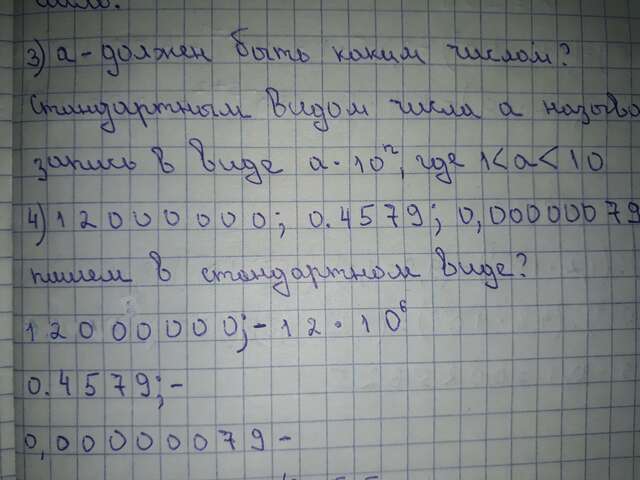 3) а - должен быть каким числом?
Стандартным видом числа а назыв
запись в виде а · 10ⁿ, где 1<а<10
4) 120000000; 0.4579; 0,00000079
пишем в стандартном виде?
120000000; - 12 · 10⁶
0.4579; -
0,000000079 -